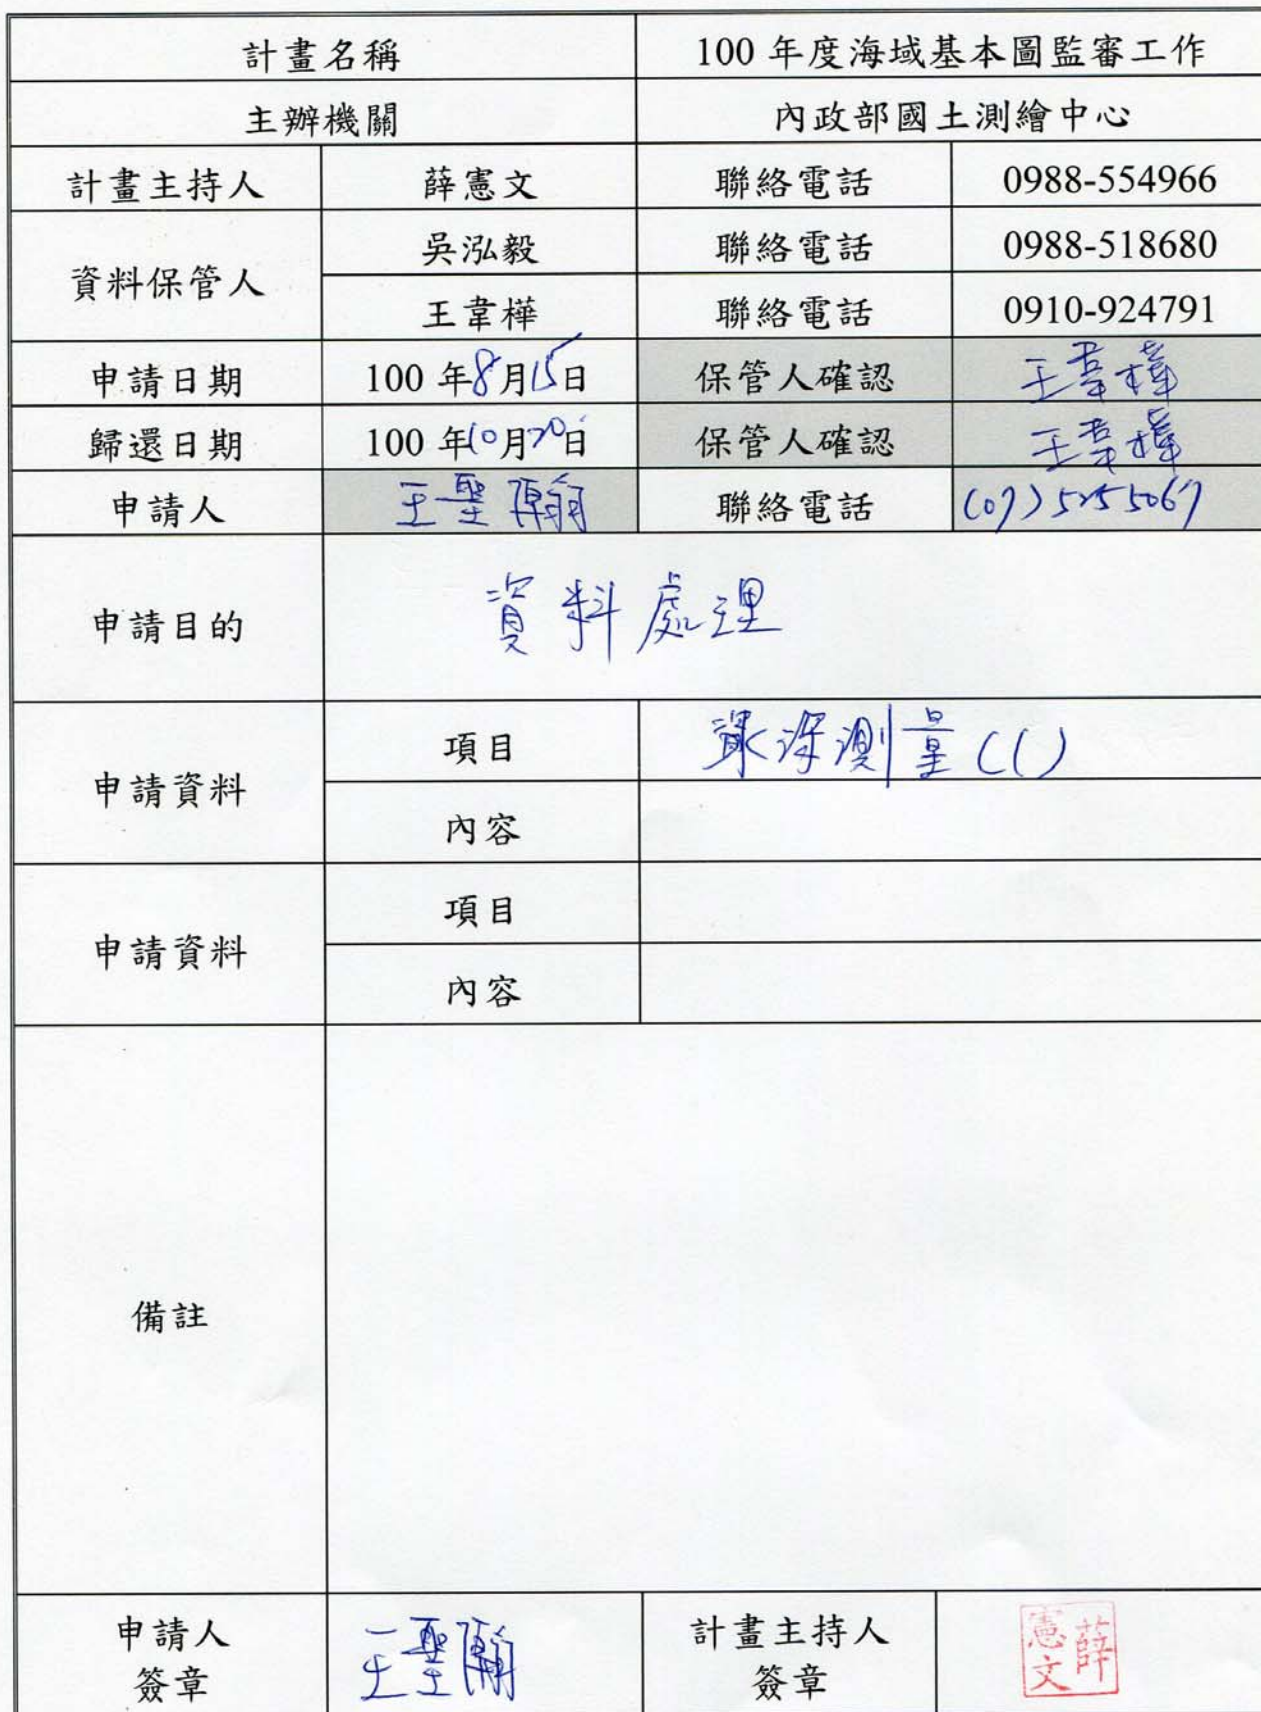 計畫名稱 100 年度海域基本圖監審工作
主辦機關 內政部國土測繪中心
計畫主持人 薛憲文 聯絡電話 0988-554966
資料保管人 吳泓毅 聯絡電話 0988-518680
王韋樺 聯絡電話 0910-924791
申請日期 100 年8月15日 保管人確認 王韋樺
歸還日期 100 年10月20日 保管人確認 王韋樺
申請人 王聖翰 聯絡電話 (07)5255067
申請目的 資料處理
申請資料 項目 深測量(1)
內容
申請資料 項目
內容
備註
申請人
簽章
王聖翰
計畫主持人
簽章
薛憲文